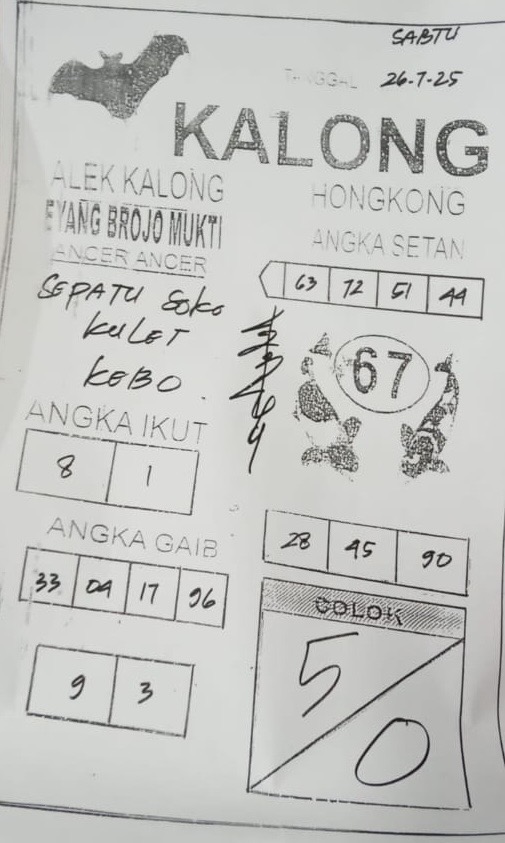 SABTU
TANGGAL 26-7-25
KALONG
ALEK KALONG
EYANG BROJO MUKTI
ANCER ANCER
SEPATU SOKO
KULET
KEBO.
ANGKA IKUT
8 1
ANGKA GAIB
33 04 17 96
9 3
HONGKONG
ANGKA SETAN
63 72 51 44
67
28 45 90
COLOK
5/0